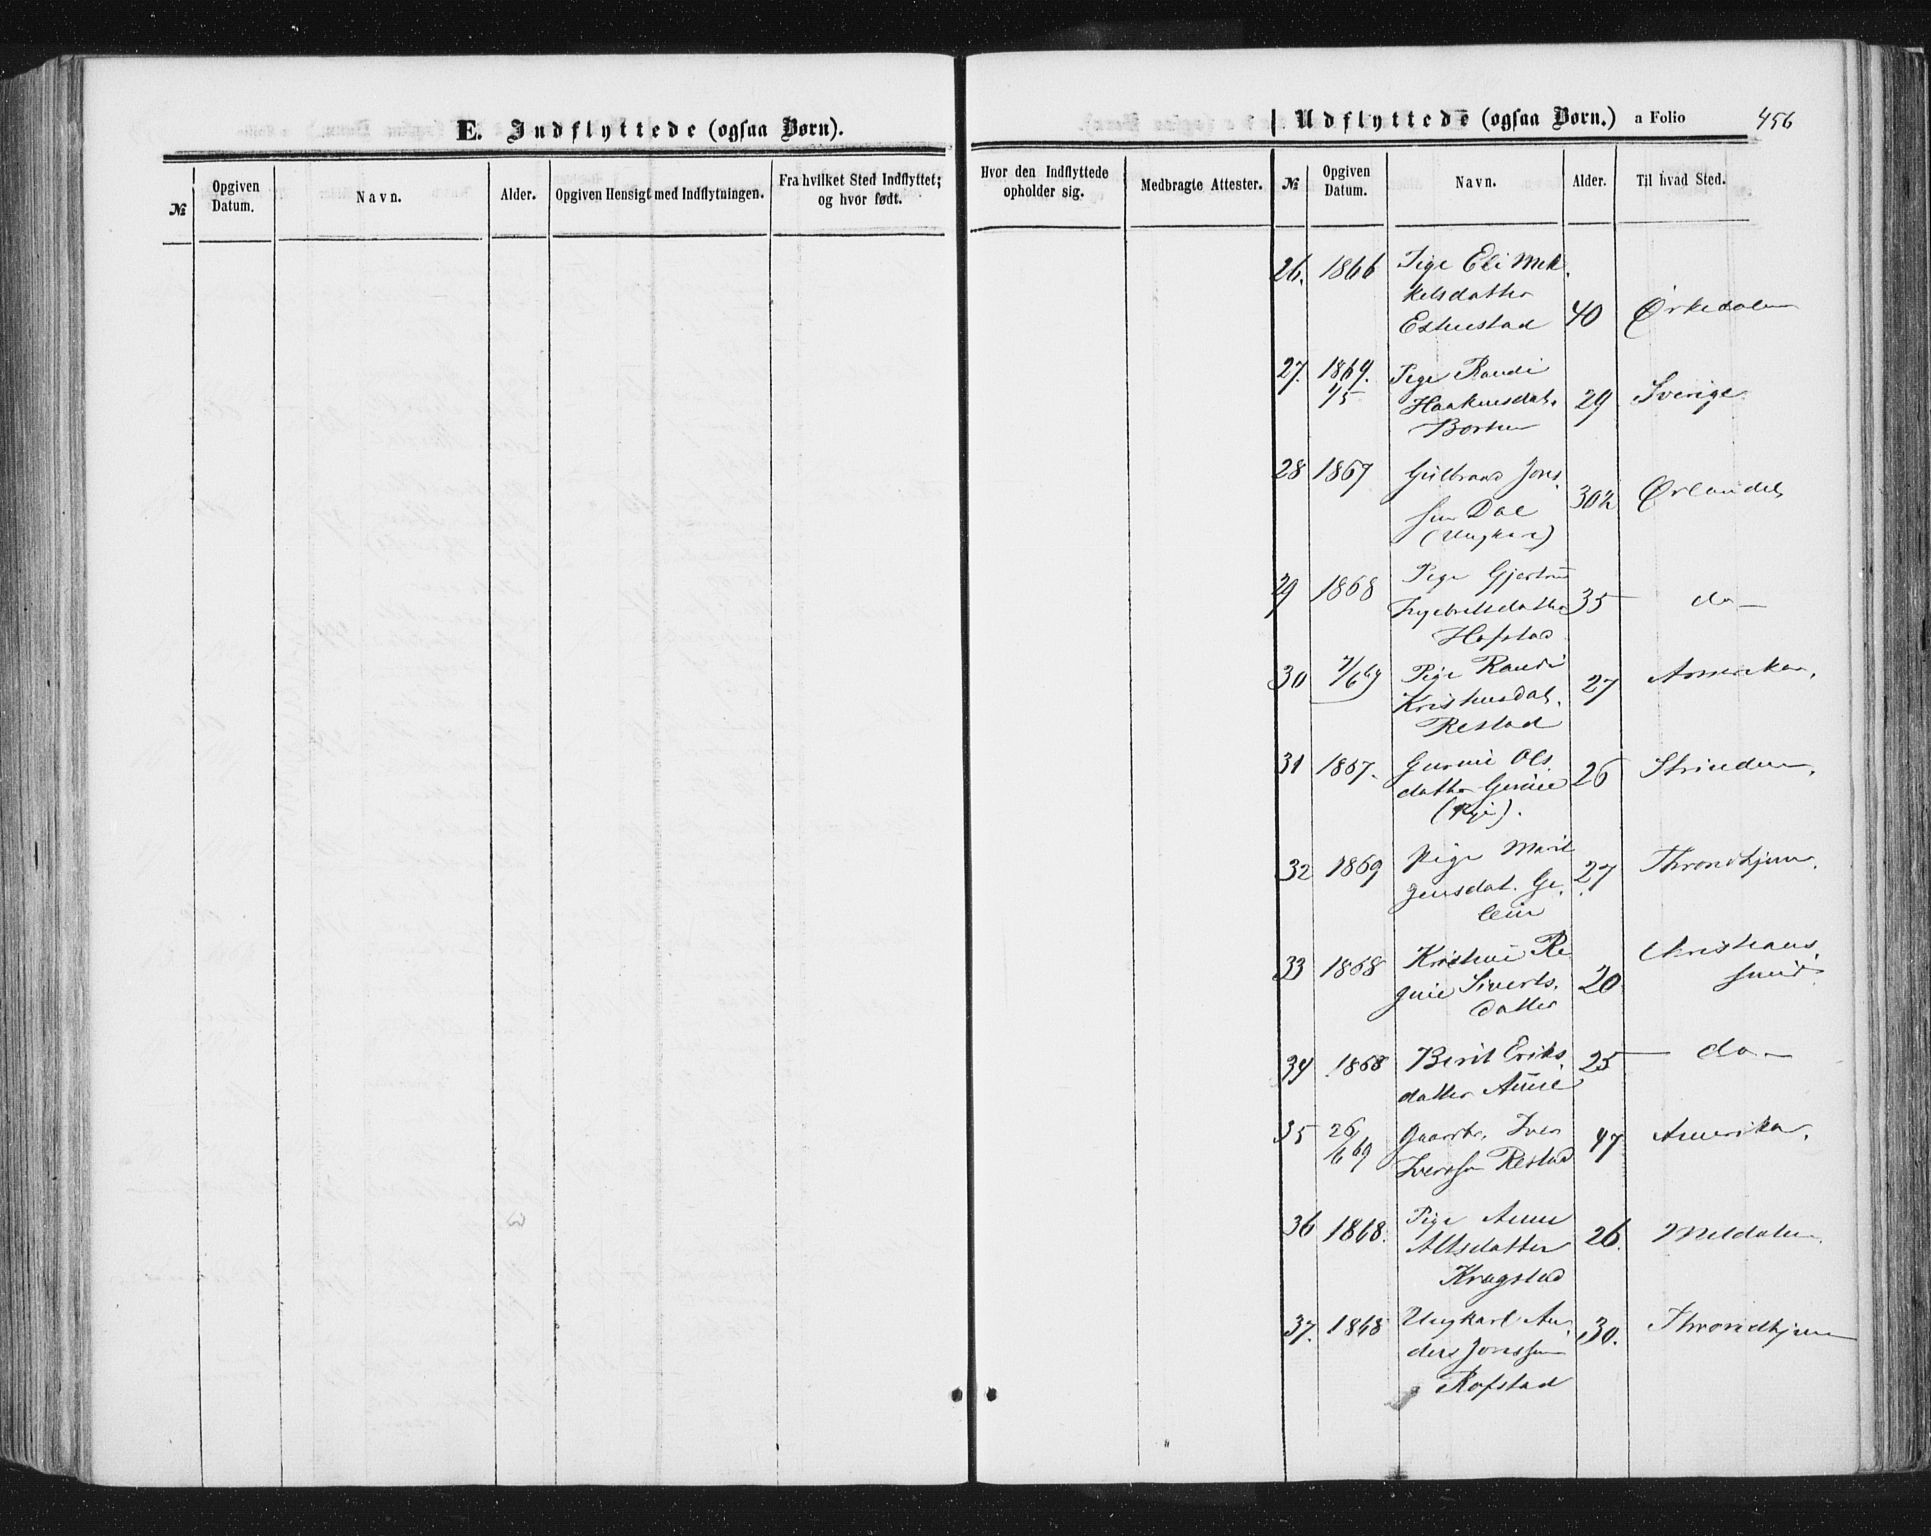 E. Indflyttede (ogsaa Børn).
Udflyttede (ogsaa Børn.) a Folio 456
№ Opgiven Datum. Navn. Alder. Opgiven Hensigt med Indflytningen. Fra hvilket Sted Indflyttet; og hvor født.
Hvor den Indflyttede opholder sig. Medbragte Attester. № Opgiven Datum. Navn. Alder. Til hvad Sted.
26. 1866 Pige Eli Mik
kelsdatter
Estenstad 40 Ørkedalen
27. 1869. Pige Randi
4/5 Haakensdat. 29 Sverige
Borten
28 1867 Gulbrand Jons
sen Dal 30½ Ørlandet
(Ungkarl)
29 1868 Pige Gjertrud
Ingebrigtsdatter 35 — do —
Hofstad
30 7/6 69 Pige Randi 27 Amerika.
Kristensdat.
Restad
31 1867. Gurine Ols
datter 26 Strinden.
(Pige).
32 1869 Pige Marit 27 Throndhjem.
Jensdat.
33 1868 Kristine Re
gine Siverts. 20 Christians
datter sund.
34 1868 Berit Eriks 25 — do. —
datter Aune
35 26/6 69 Gaardbr. Iver 47 Amerika.
Iversen Restad
36 1868. Pige Anne
Altsdatter 26. Meldalen.
Kregstad
37. 1868 Ungkarl An
ders Jonssen 30. Throndhjem
Rofstad